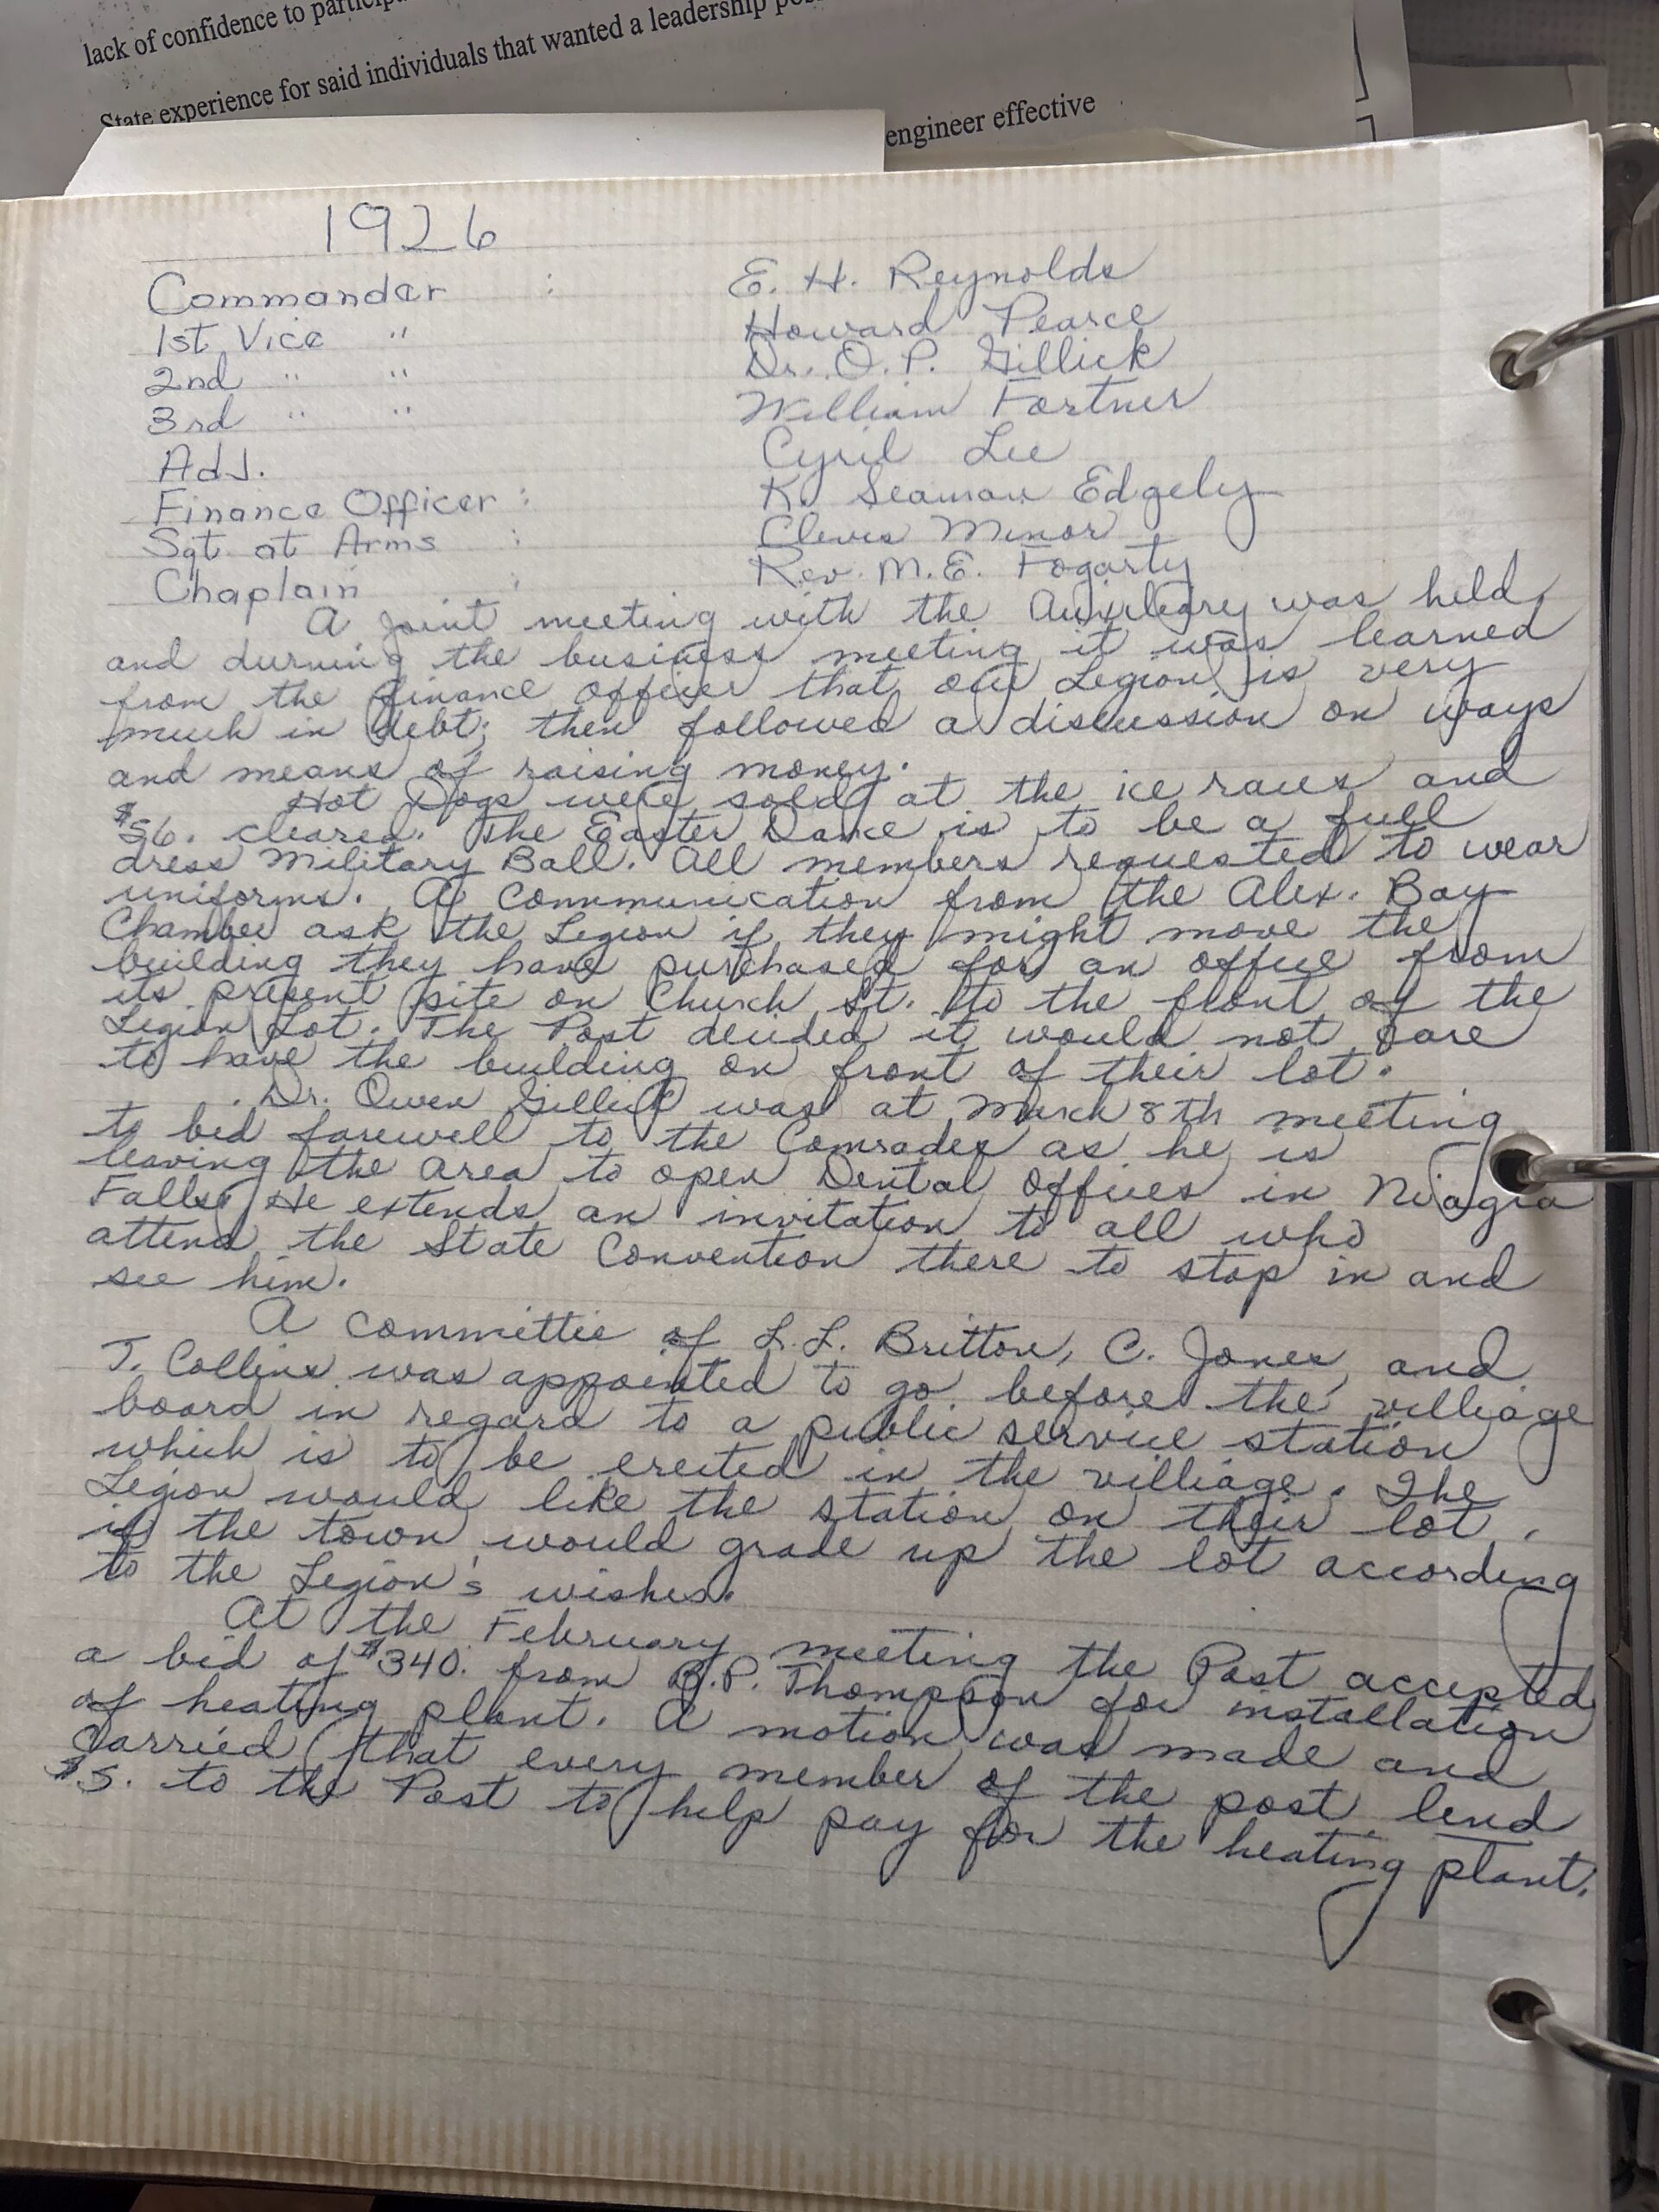 lack of confidence to
State experience for said individuals that wanted a leadership
engineer effective
1926
Commander : E. H. Reynolds
1st Vice " Howard Pearce
2nd " " Dr. O. P. Gillick
3rd " " William Fortner
Adj. Cyril Lee
Finance Officer : K. Seaman Edgely
Sgt. at Arms : Cleves Minor
Chaplain : Rev. M. E. Fogarty
A joint meeting with the Auxileary was held,
and durning the business meeting it was learned
from the finance officer that our Legion is very
much in debt; then followed a discussion on ways
and means of raising money.
Hot Dogs were sold at the ice races and
$56. cleared. The Easter Dance is to be a full
dress Military Ball. All members requested to wear
uniforms. A Communication from the Alex. Bay
Chamber ask the Legion if they might move the
building they have purchased for an office from
its present site on Church St. to the front of the
Legion Lot. The Post decided it would not care
to have the building on front of their lot.
Dr. Owen Gillick was at March 8th meeting
to bid farewell to the Comrades as he is
leaving the area to open Dental Offices in Niagra
Falls. He extends an invitation to all who
attend the State Convention there to stop in and
see him.
A committie of L. L. Britton, C. Jones, and
J. Collins was appointed to go before the villiage
board in regard to a public service station
which is to be erected in the villiage. The
Legion would like the station on their lot,
if the town would grade up the lot according
to the Legion's wishes.
At the February meeting the Post accepted
a bid of $340. from B. P. Thompson for installation
of heating plant. A motion was made and
carried that every member of the post lend
$5. to the Post to help pay for the heating plant.